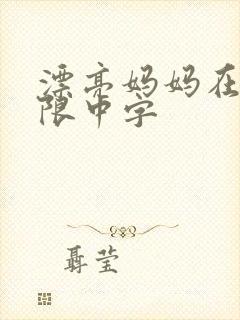 漂亮妈妈在
限中字
聂莹